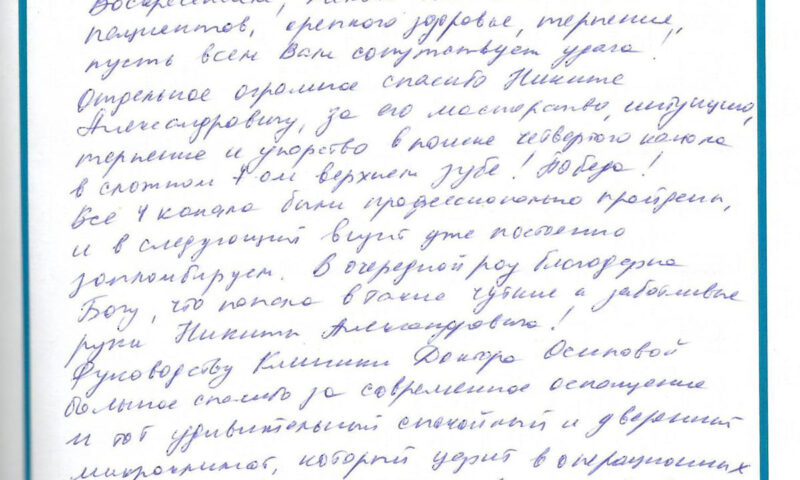 пациентов, крепкого здоровье, терпение,
пусть всем Вам сопутствует удача!
Отдельное огромное спасибо Никите
Александровичу, за его мастерство, интуицию,
терпение и упорство в поиске четвертого канала
в сложном 7-ом верхнем зубе! Победа!
Все 4 канала были профессионально пройдены,
и в следующий визит уже постоянно
запломбируем. В очередной раз благодарна
Богу, что попала в такие чуткие и заботливые
руки Никиты Александровича!
Руководству Клиники Доктора Осиповой
большое спасибо за современное оснащение
и тот удивительный спокойный и уверенный
микроклимат, который царит в операционных